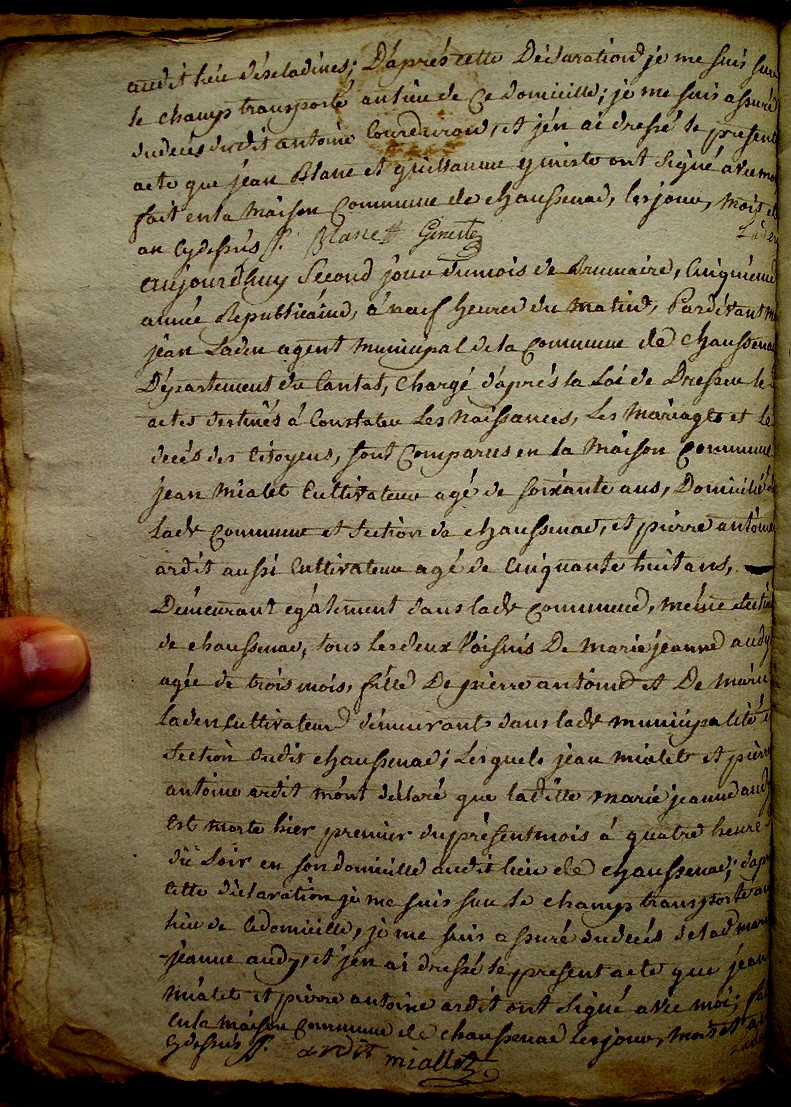 audit lieu d'escladines; D'après cette Déclaration je me suis sur
le champ transporté au lieu de Ce domicille; je me suis assuré
du decés dudit antoine Courdurou, et j'en ai dressé le present
acte que jean Blanc et guillaume ginioste ont signé avec moi
fait en la Maison Commune de chaussenac, les jour, mois et
an cydessus
Blanc Ginioste Laden
aujourd'huy second jour du mois de Brumaire, Cinquieme
année Republicaine, à neuf heures du Matin, Pardevant m
jean Laden agent Municipal de la Commune de chaussenac
Département du Cantal, Chargé d'aprés la Loi de Dresser le
actes destinés à Constater Les Naissances, Les Mariages et le
decés des Citoyens, sont Comparus en la Maison Commune
jean Mialet Cultivateur agé de soixante ans, Domicilié d
lade Commune et section de chaussenac, et pierre antoine
ardit aussi Cultivateur agé de Cinquante huit ans,
Demeurant également dans lade Commune, même section
de chaussenac, tous les deux Voisins De marie jeanne audy
agée de trois mois, fille De pierre antoine et De marie
Laden Cultivateur demeurants dans lade municipalité
section dudit chaussenac; Lesquels jean mialet et pierre
antoine ardit m'ont déclaré que laditte marie jeanne audy
est morte hier premier du présent mois à quatre heure
du soir en son domicille audit lieu de chaussenac; d'apr
cette déclaration je me suis sur le champ transporté au
lieu de Ce domicille, je me suis assuré du decés de lad marie
jeanne audy, et j'en ai dressé le present acte que jean
mialet et pierre antoine ardit ont signé avec moi; fa
en la maison Commune de chaussenac les jour, mois et an
cydessus
ardit miallet